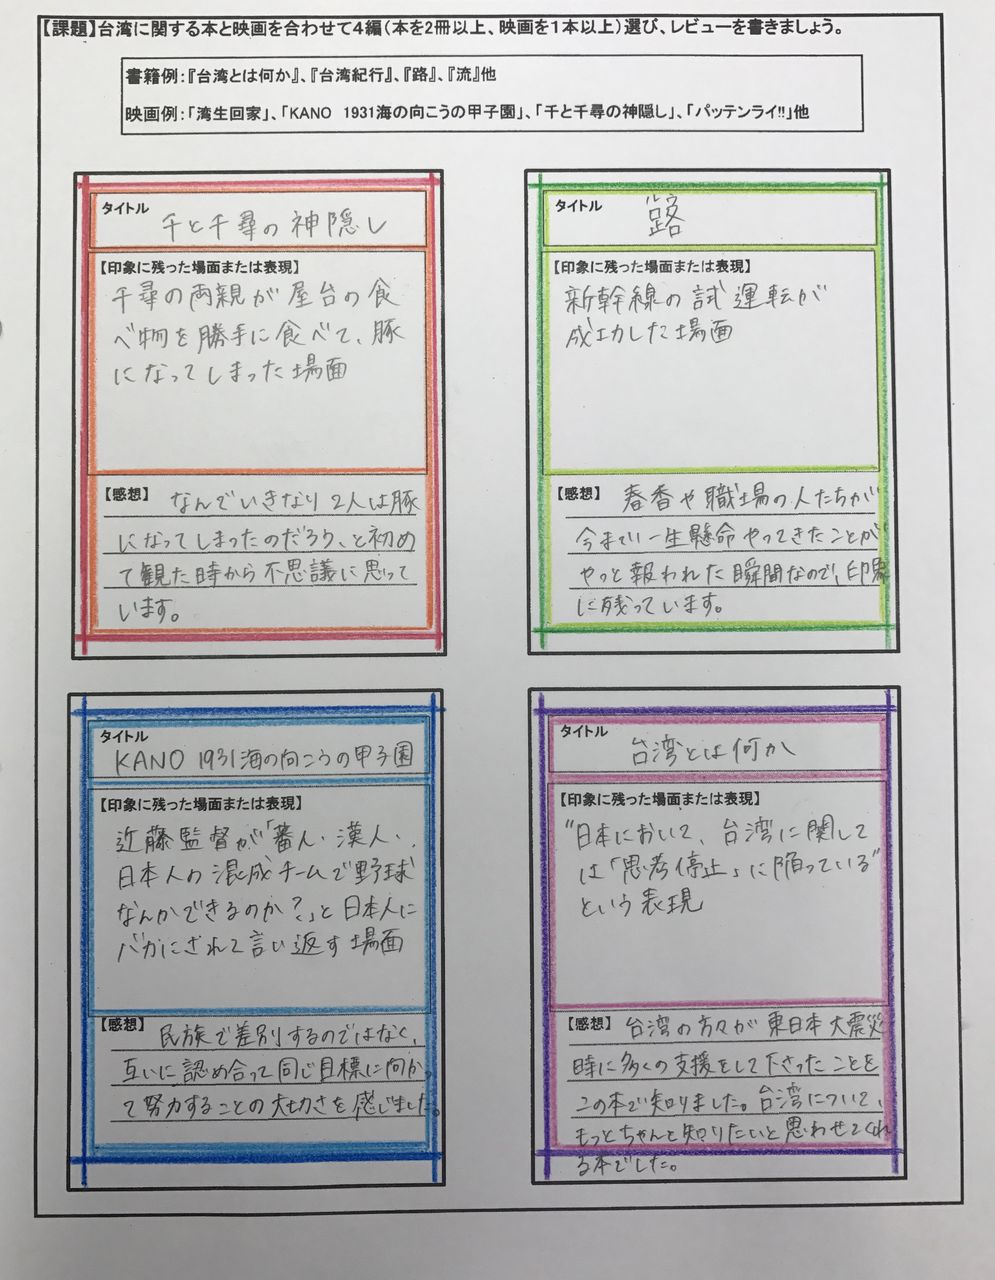 【課題】台湾に関する本と映画を合わせて4編（本を2冊以上、映画を1本以上）選び、レビューを書きましょう。
書籍例：『台湾とは何か』、『台湾紀行』、『路』、『流』他
映画例：「湾生回家」、「KANO 1931海の向こうの甲子園」、「千と千尋の神隠し」、「パッテンライ!!」他
タイトル
千と千尋の神隠し
【印象に残った場面または表現】
千尋の両親が屋台の食
べ物を勝手に食べて、豚
になってしまった場面
【感想】 なんでいきなり2人は豚
になってしまったのだろう、と初め
て観た時から不思議に思って
います。
タイトル
路
【印象に残った場面または表現】
新幹線の試運転が
成功した場面
【感想】 春香や職場の人たちが
今まで一生懸命やってきたことが
やっと報われた瞬間なので、印象
に残っています。
タイトル
KANO 1931海の向こうの甲子園
【印象に残った場面または表現】
近藤監督が「蕃人・漢人・
日本人の混成チームで野球
なんかできるのか？」と日本人に
バカにされて言い返す場面
【感想】 民族で差別するのではなく、
互いに認め合って同じ目標に向かっ
て努力することの大切さを感じました。
タイトル
台湾とは何か
【印象に残った場面または表現】
"日本において、台湾に関して
は「思考停止」に陥っている"
という表現
【感想】 台湾の方々が東日本大震災
時に多くの支援をして下さったことを
この本で知りました。台湾について、
もっとちゃんと知りたいと思わせてくれ
る本でした。